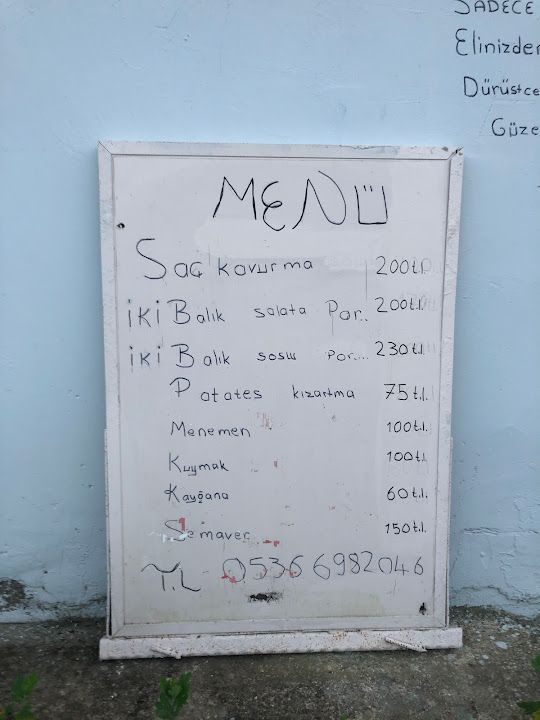 SADECE
Elinizden
Dürüstce
Güze
MENÜ
Saç kavurma 200 t.l.
İKİ Balık salata Por.. 200 t.l.
İKİ Balık soslu Por.... 230 t.l.
Patates kızartma 75 t.l.
Menemen 100 t.l.
Kuymak 100 t.l.
Kayğana 60 t.l.
Semaver 150 t.l.
T.L 0536 6982046